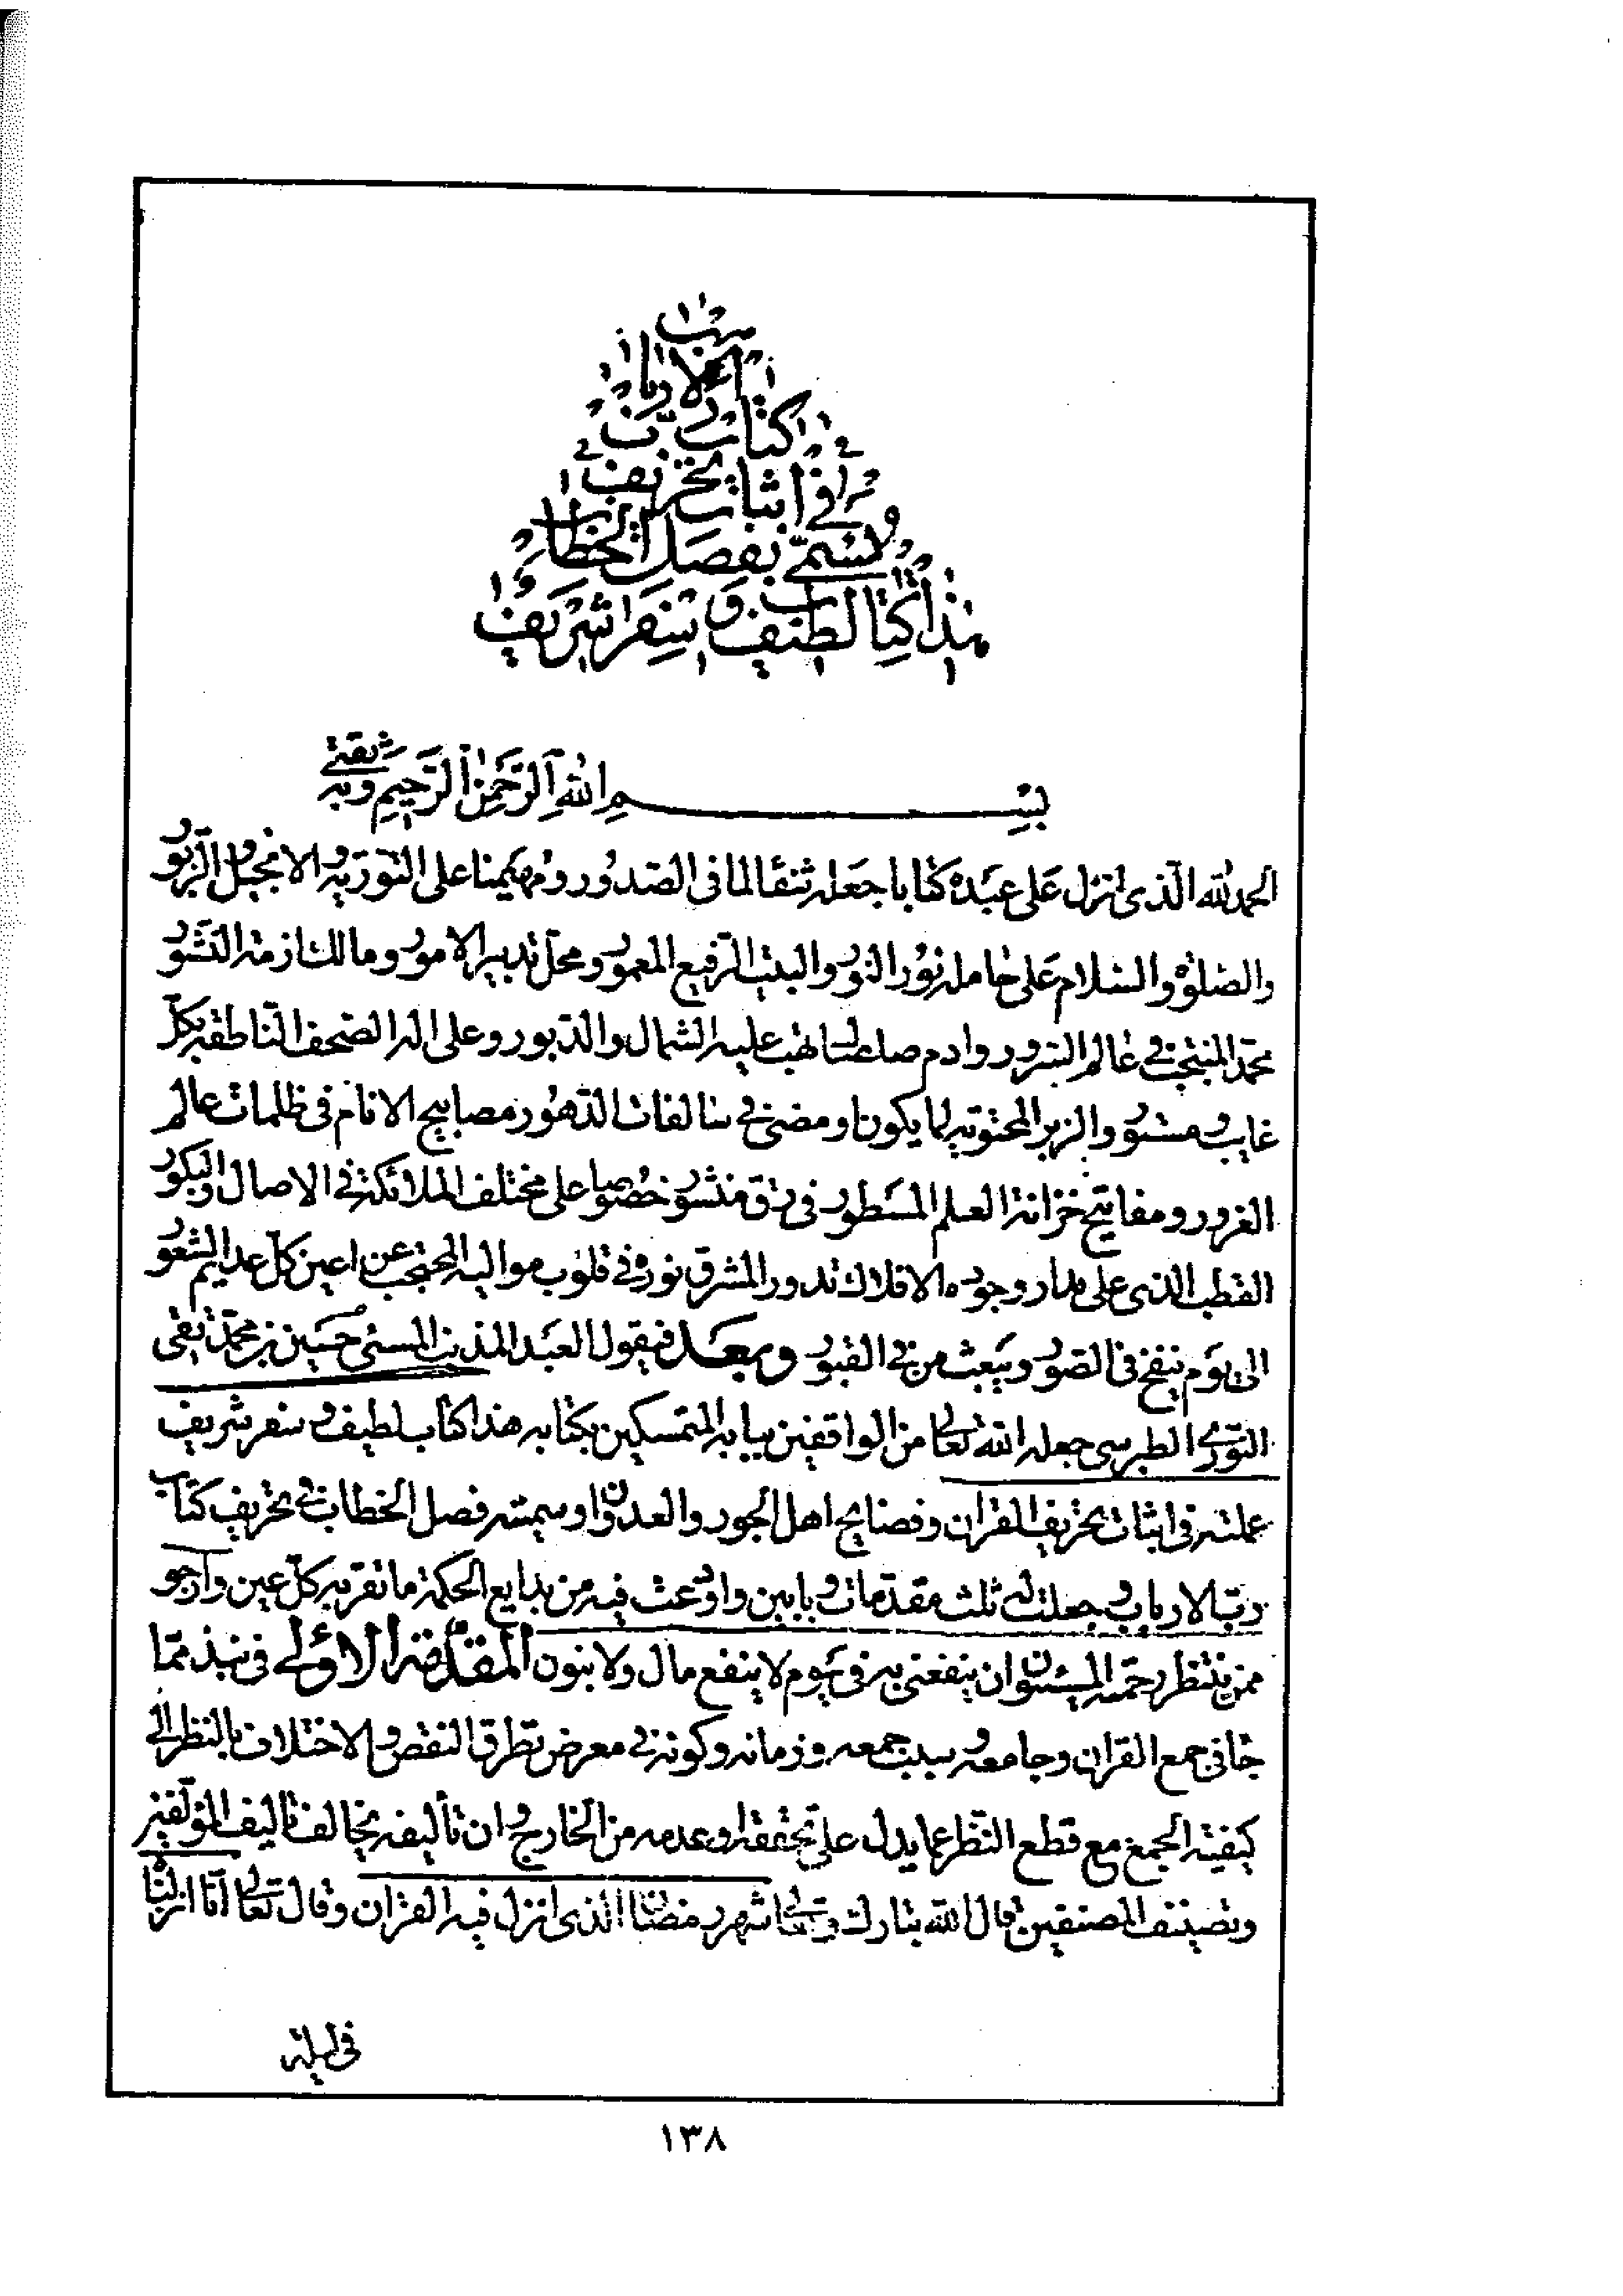 الارباب
كتاب رب
في اثبات تحريف
ومسمى بفصل الخطاب
هذا كتاب لطيف وسفر شريف
بسم الله الرحمن الرحيم وبه ثقتي
الحمد لله الذي انزل على عبده كتابا جعله شفاء لما فى الصدور ومهيمنا على التورية والانجيل والزبور
والصلوة والسلام على حامله نور النور والبيت الرفيع المعمور ومحل تدبير الامور ومالك ازمة النشور
محمد المنتجب في عالم السرور وادم صلصال تهب عليه الشمال والدبور وعلى اله الصحف الناطقة بكل
غايب ومستور والزبر المحتوية لما يكون او مضى في سالفات الدهور مصابيح الانام فى ظلمات عالم
الغرور ومفاتيح خزانة العلم المسطور فى رق منشور خصوصا على مختلف الملائكة في الاصال والبكور
القطب الذى على مدار وجوده الافلاك تدور المشرق نوره في قلوب مواليه المحتجب عن اعين كل عديم الشعور
الى يوم ينفخ فى الصور ويبعث من في القبور وبعد فيقول العبد المذنب المسئ حسين بن محمد تقي
النوري الطبرسي جعله الله تعالى من الواقفين ببابه المتمسكين بكتابه هذا كتاب لطيف وسفر شريف
عملته فى اثبات تحريف القران وفضايح اهل الجور والعدوان وسميته فصل الخطاب في تحريف كتاب
رب الارباب وجعلت له ثلث مقدمات وبابين واودعت فيه من بدايع الحكمة ما تقر به كل عين وارجو
ممن ينتظر رحمته المسيئون ان ينفعنى به فى يوم لا ينفع مال ولا بنون المقدمة الاولى فى نبذ مما
جاء فى جمع القران وجامعه وسبب جمعه وزمانه وكونه في معرض تطرق النقص والاختلاف بالنظر الى
كيفية الجمع مع قطع النظر عما يدل على تحققه او عدمه من الخارج وان تأليفه يخالف تأليف المؤلفين
وتصنيف المصنفين قال الله تبارك وتعالى شهر رمضان الذى انزل فيه القران وقال تعالى انا انزلناه
فى ليلة
١٣٨